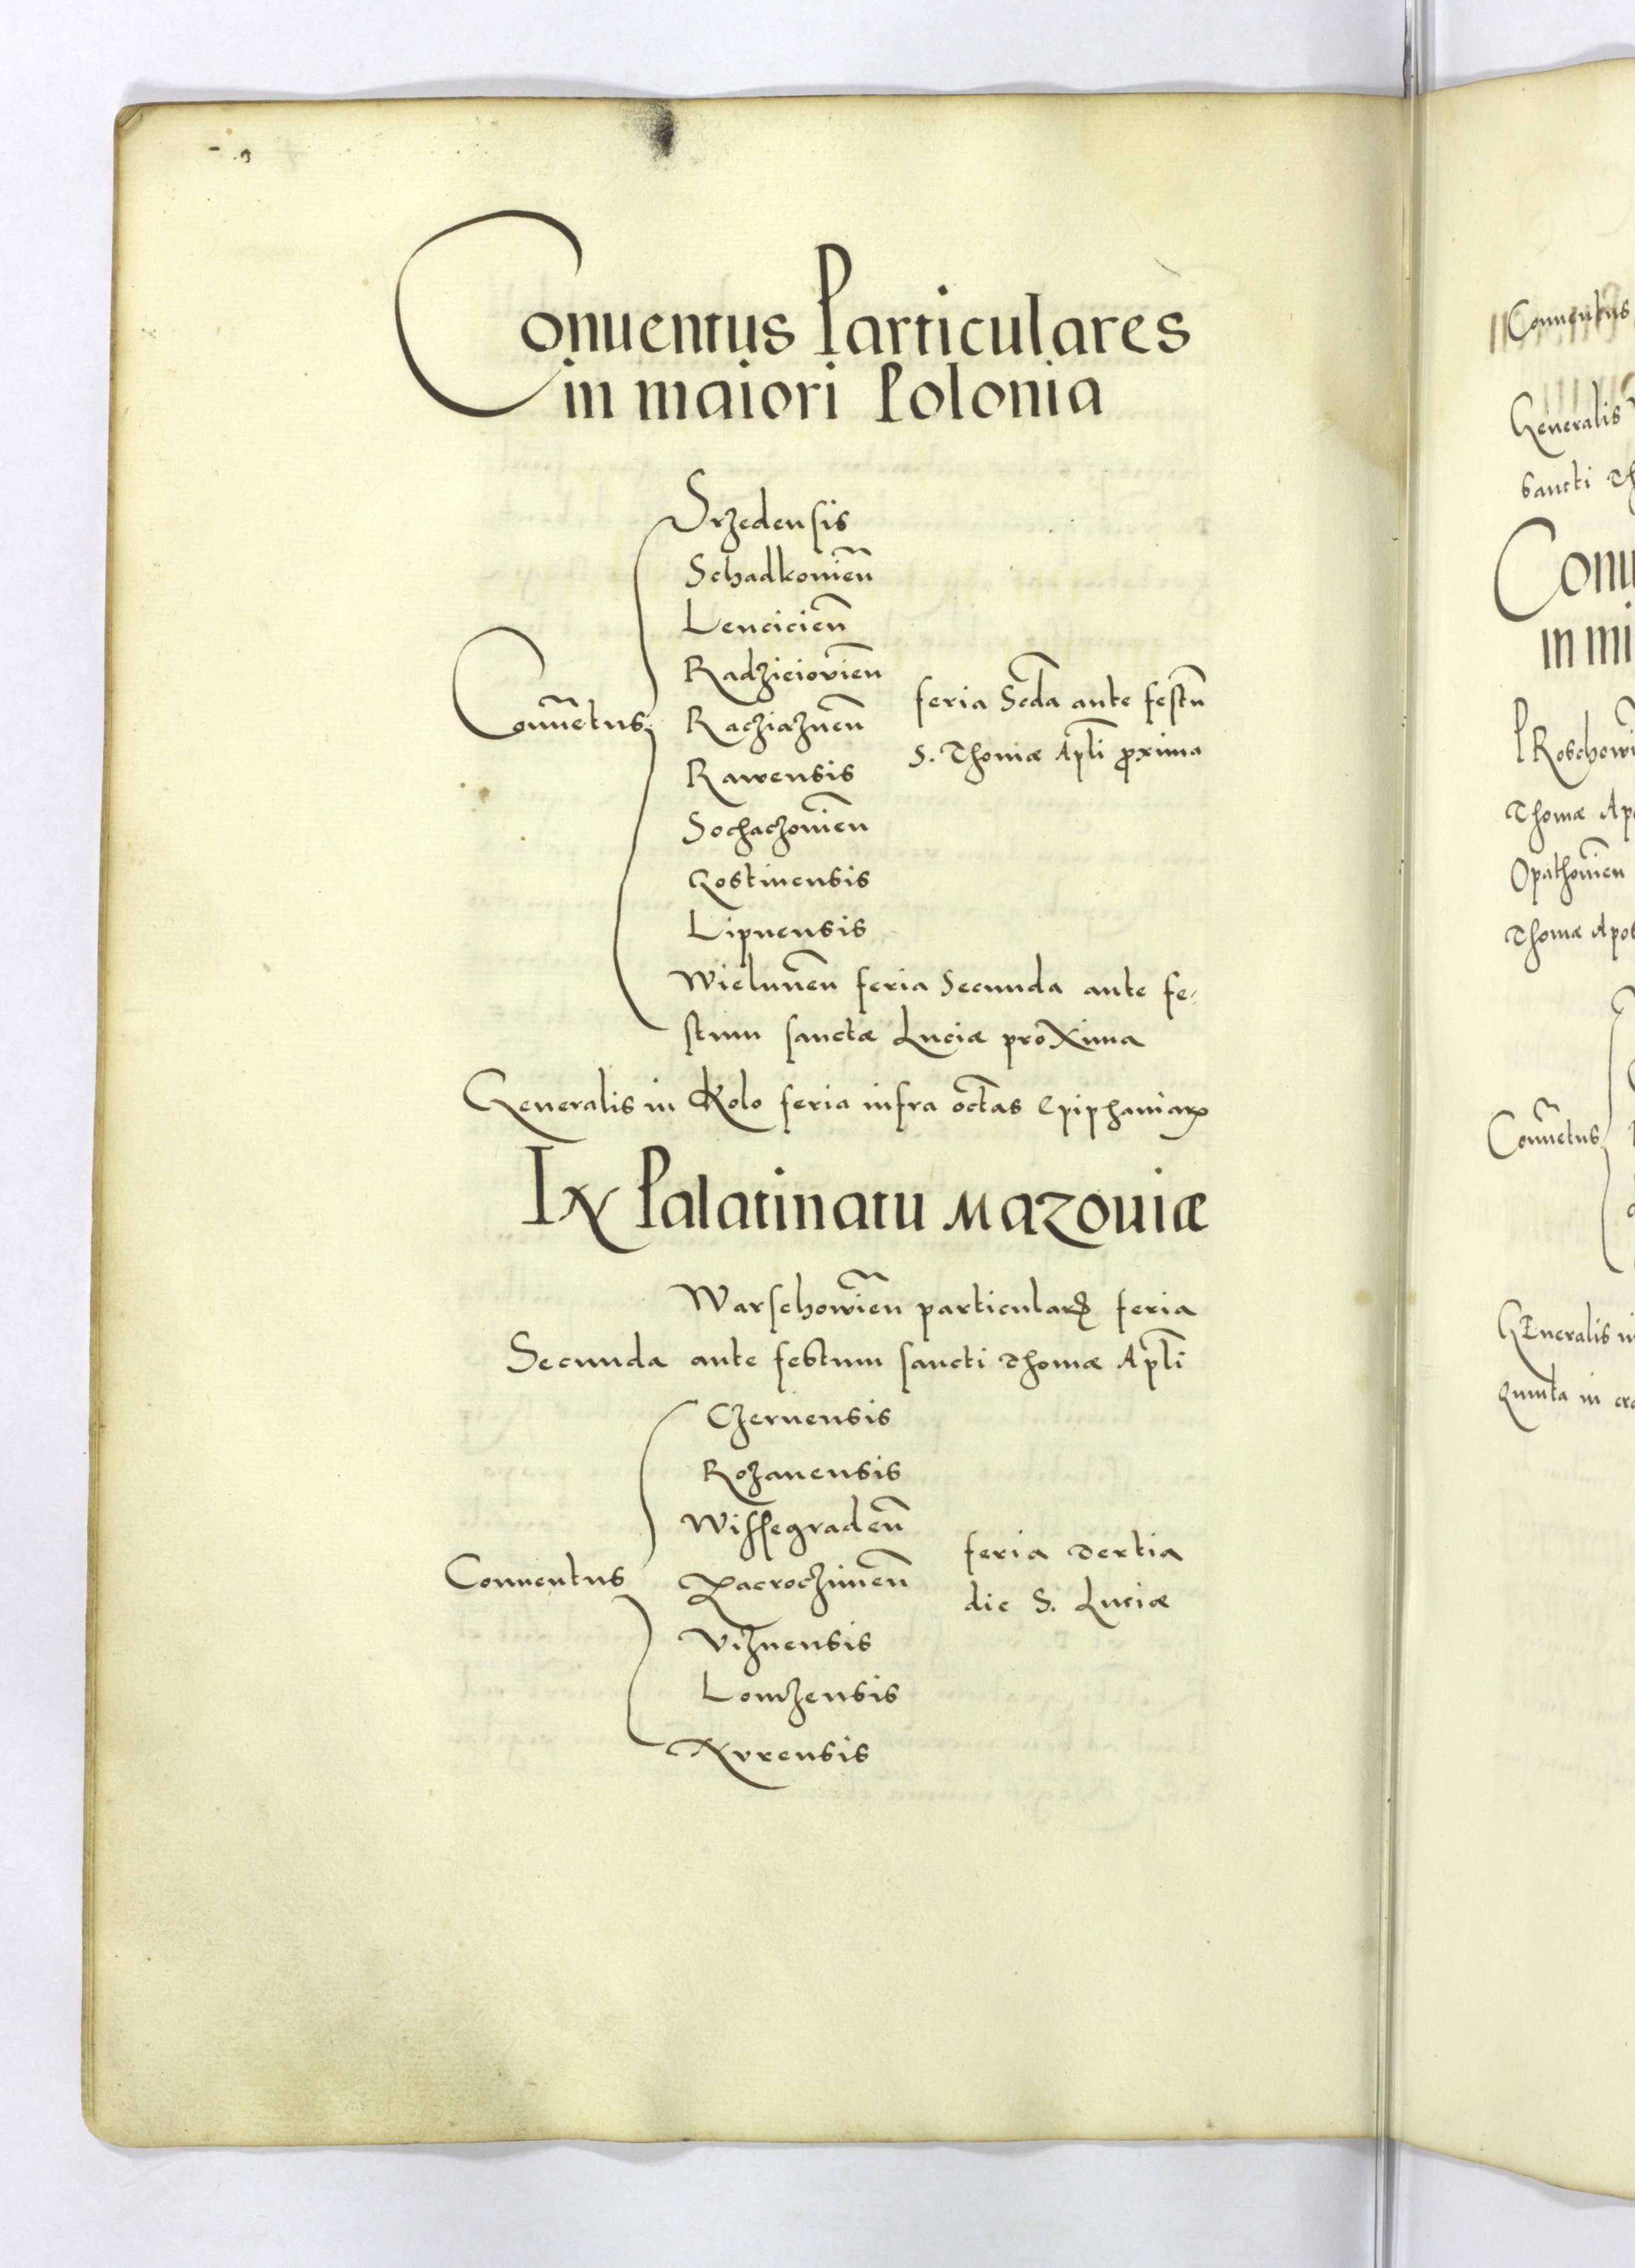 Conuentus Particulares
in maiori Polonia
Srzedensis
Schadkouien̄
Lencicien̄
Radzieiovien̄
Conuētus
Racziaznen̄
feria Scd̄a ante festū
S. Thomæ Apl̄i ꝓxima
Rawensis
Sochaczouien̄
Gostinensis
Lipnensis
Wielunen̄ feria Secunda ante fe-
stum sanctæ Luciæ proxima
Generalis in Kolo feria infra oct̄as Epiphaniaꝝ
In Palatinatu Mazouiæ
Warschowien̄ particularꝭ feria
Secunda ante festum sancti Thomæ Apl̄i
Czernensis
Rozanensis
Wissegraden̄
Conuentus
Zacroczimen̄
feria Tertia
die S. Luciæ
Viznensis
Lomzensis
Nvrensis
Conuentus
Generalis
Sancti Th
Conu
in mi
Proschowi
Thomæ Ap
Opathouien
Thomæ Apos
Conuētus
GEneralis in
quinta in cra